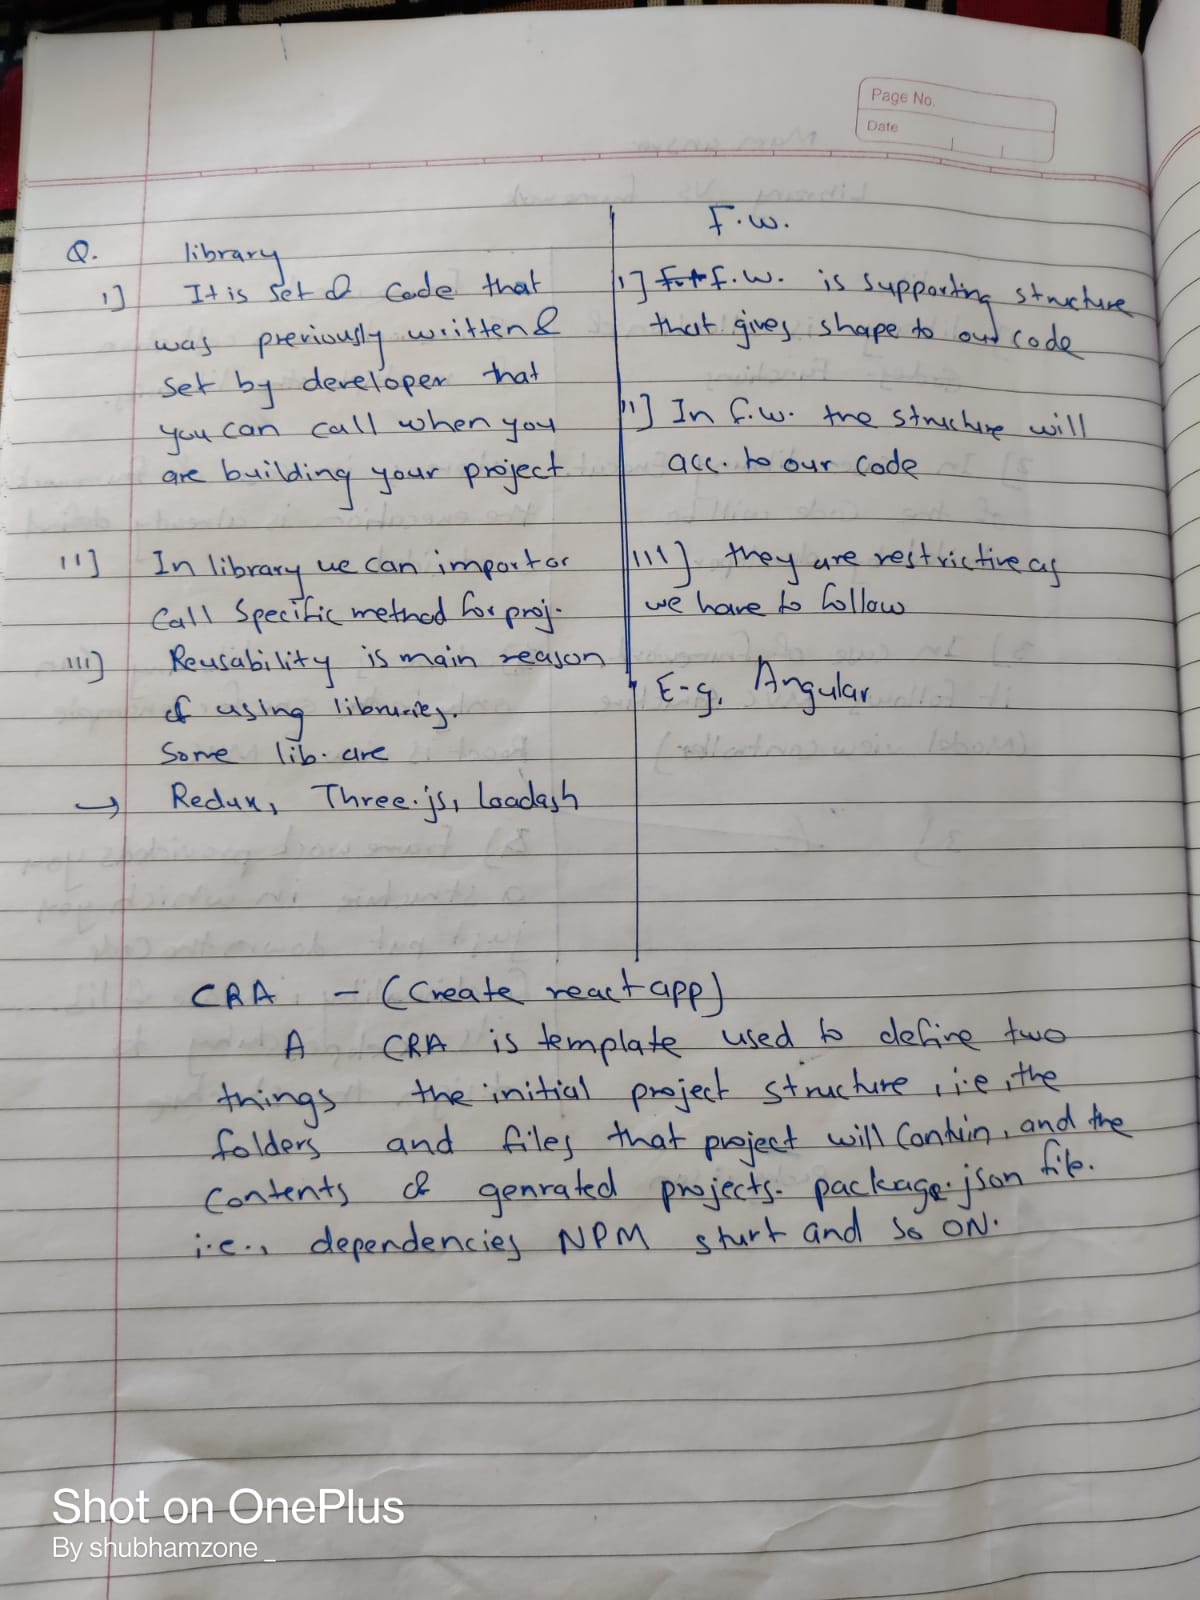 Page No.
Date
Q. library
1] It is set of code that
was previously written &
set by developer that
you can call when you
are building your project
11] In library we can import or
call specific method for proj.
111] Reusability is main reason
of using libraries.
Some lib. are
→ Redux, Three.js, Loadash
F.W.
1] F.W. is supporting structure
that gives shape to our code
11] In F.W. the structure will
acc. to our code
111] they are restrictive as
we have to follow
E-g. Angular
CRA - (Create react app)
A CRA is template used to define two
things the initial project structure, i.e, the
folders and files that project will contain, and the
contents of genrated projects. package.json file.
i.e., dependencies NPM start and so ON.
Shot on OnePlus
By shubhamzone_